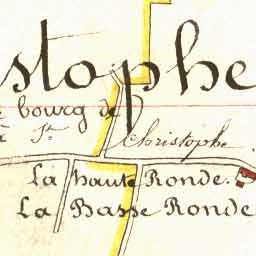 stophe
bourg de
à St. Christophe.
La haute Ronde.
La Basse Ronde